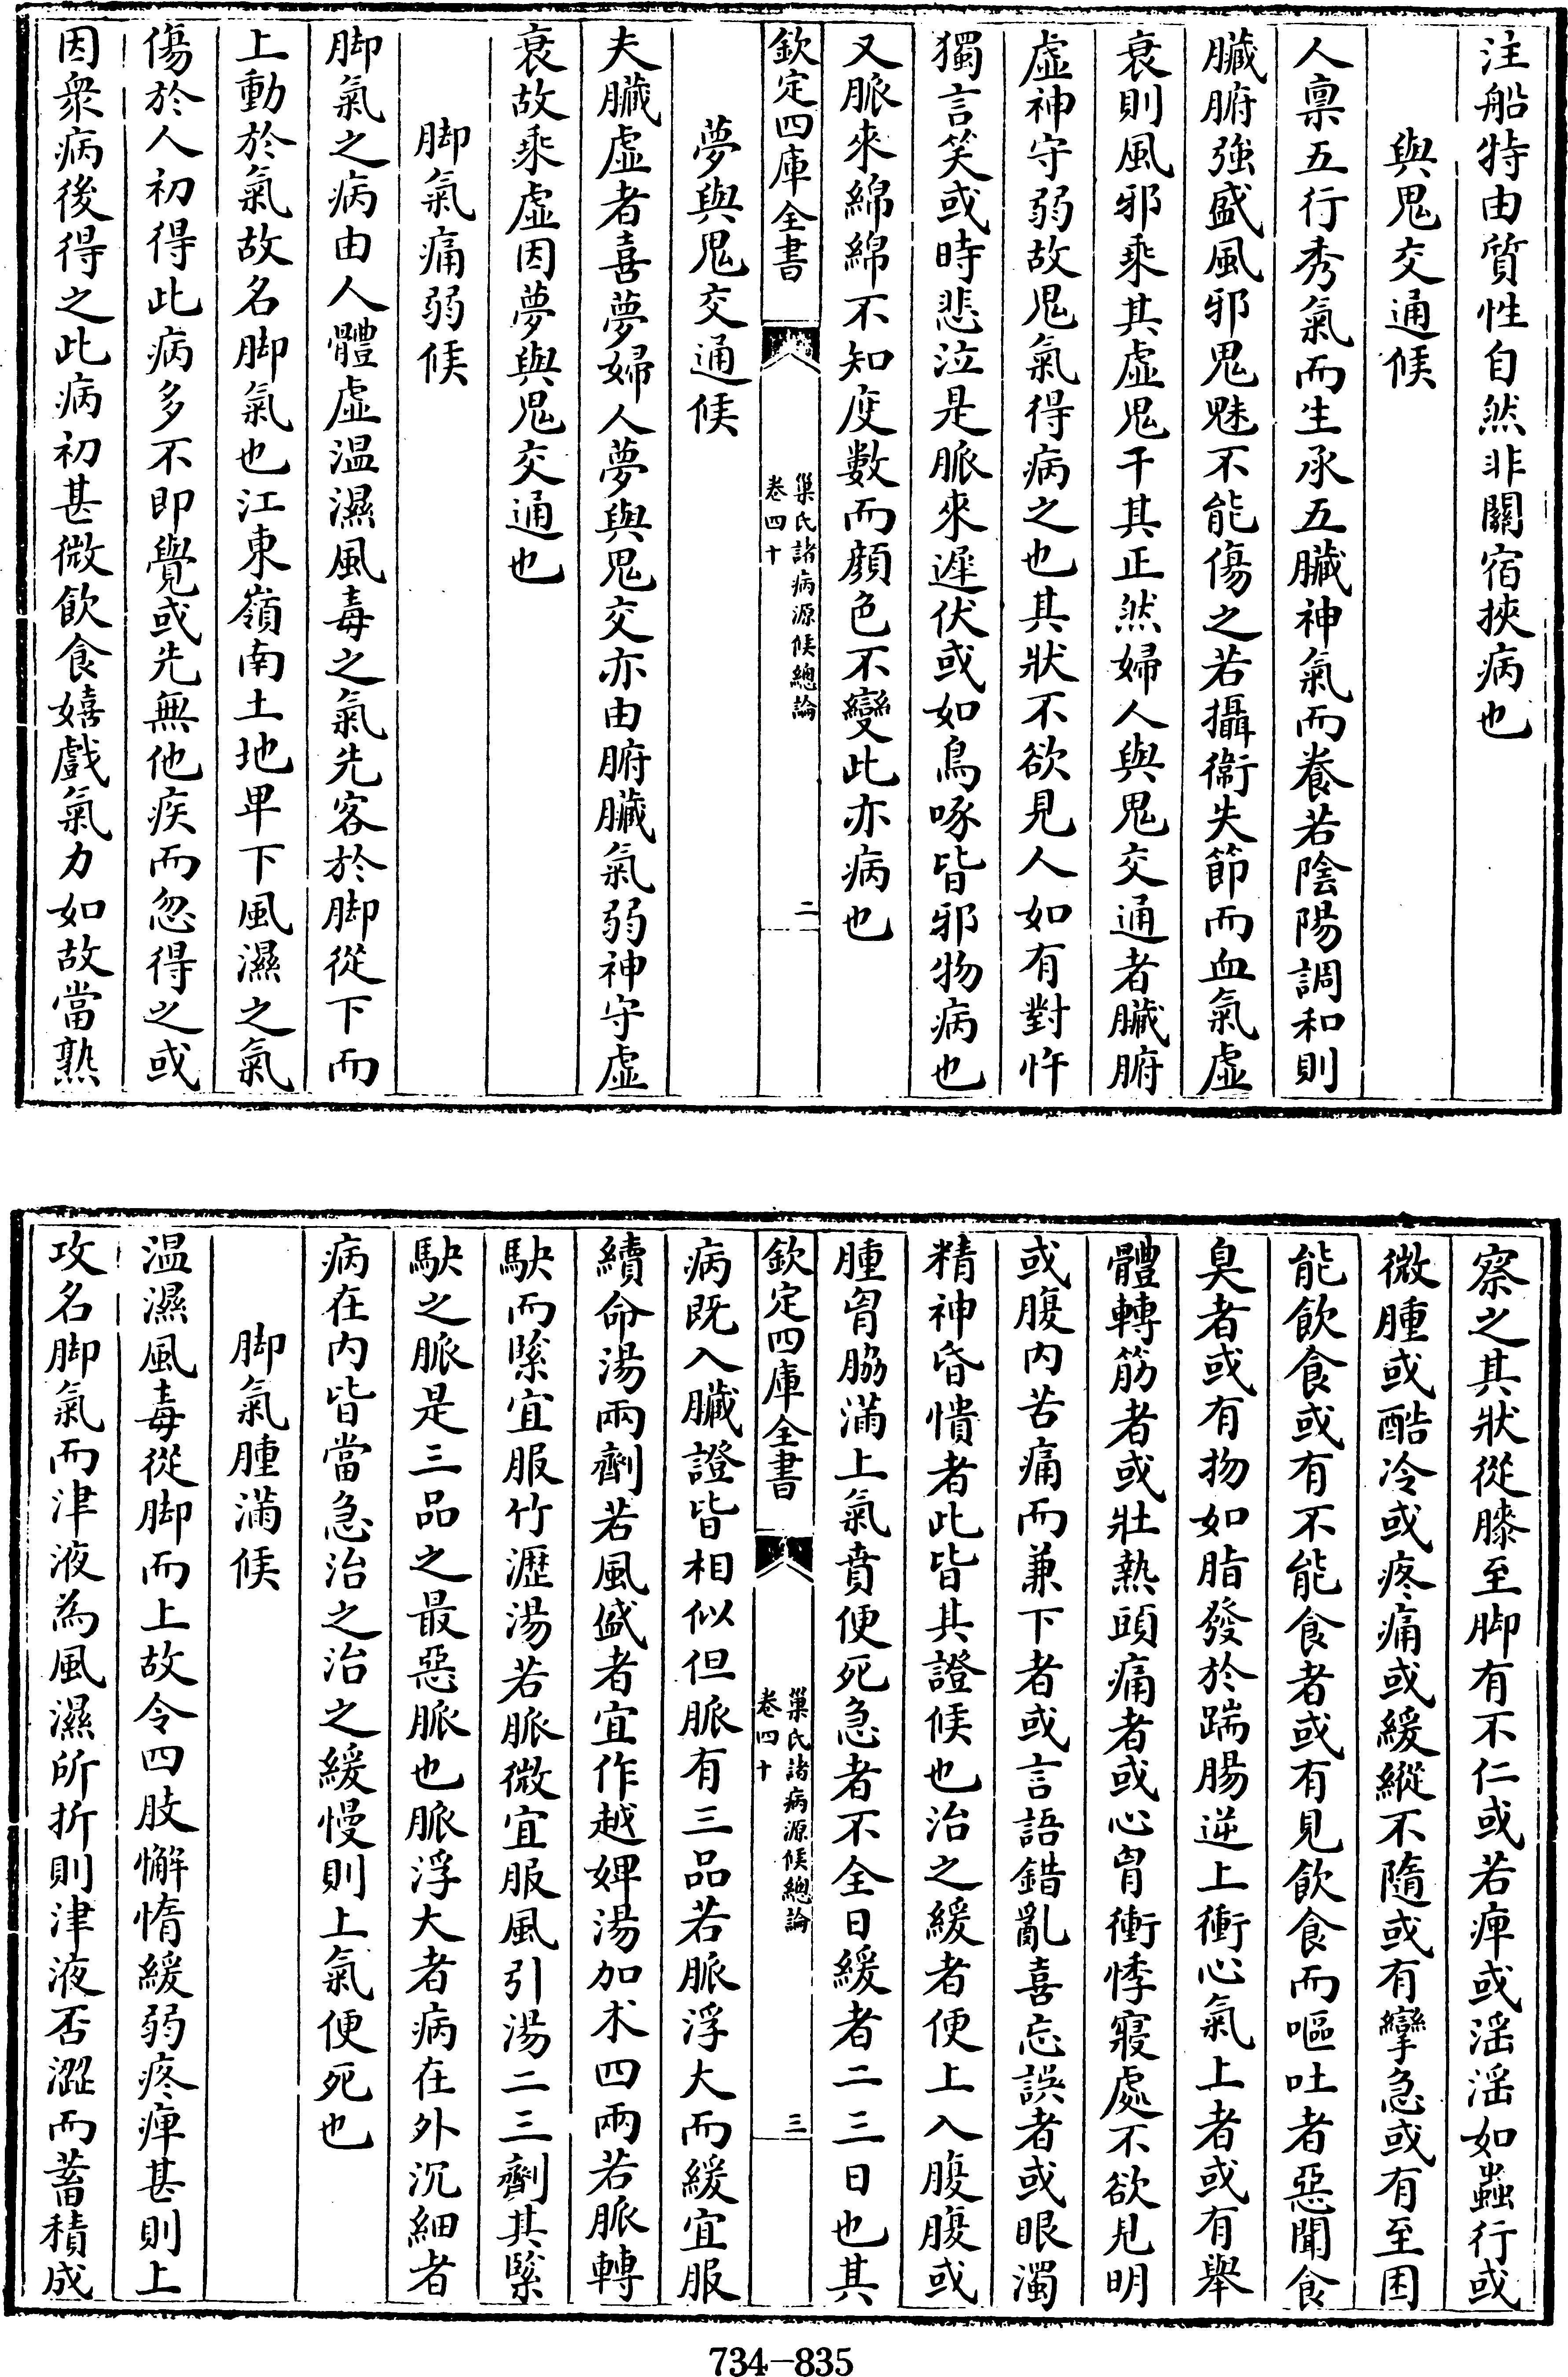 注船特由質性自然非關宿挾病也
與鬼交通候
人禀五行秀氣而生承五臟神氣而養若陰陽調和則
臟腑強盛風邪鬼魅不能傷之若攝衞失節而血氣虛
衰則風邪乘其虛鬼干其正然婦人與鬼交通者臟腑
虛神守弱故鬼氣得病之也其狀不欲見人如有對忤
獨言笑或時悲泣是脈來遲伏或如鳥啄皆邪物病也
又脈來綿綿不知度數而顔色不變此亦病也
欽定四庫全書
巢氏諸病源候總論
卷四十
二
夢與鬼交通候
夫臟虛者喜夢婦人夢與鬼交亦由腑臟氣弱神守虛
衰故乘虛因夢與鬼交通也
脚氣痛弱候
脚氣之病由人體虛温濕風毒之氣先客於脚從下而
上動於氣故名脚氣也江東嶺南土地卑下風濕之氣
傷於人初得此病多不即覺或先無他疾而忽得之或
因衆病後得之此病初甚微飲食嬉戲氣力如故當熟
察之其狀從膝至脚有不仁或若痺或淫淫如蟲行或
微腫或酷冷或疼痛或緩縱不隨或有攣急或有至困
能飲食或有不能食者或有見飲食而嘔吐者惡聞食
臭者或有物如脂發於踹腸逆上衝心氣上者或有舉
體轉筋者或壯熱頭痛者或心胷衝悸寢處不欲見明
或腹内苦痛而兼下者或言語錯亂喜忘誤者或眼濁
精神昏憒者此皆其證候也治之緩者便上入腹腹或
腫胷脇滿上氣賁便死急者不全日緩者二三日也其
欽定四庫全書
巢氏諸病源候總論
卷四十
三
病既入臟證皆相似但脈有三品若脈浮大而緩宜服
續命湯兩劑若風盛者宜作越婢湯加术四兩若脈轉
駃而緊宜服竹瀝湯若脈微宜服風引湯二三劑其緊
駃之脈是三品之最惡脈也脈浮大者病在外沉細者
病在内皆當急治之治之緩慢則上氣便死也
脚氣腫滿候
温濕風毒從脚而上故令四肢懈惰緩弱疼痺甚則上
攻名脚氣而津液為風濕所折則津液否澀而蓄積成
734-835